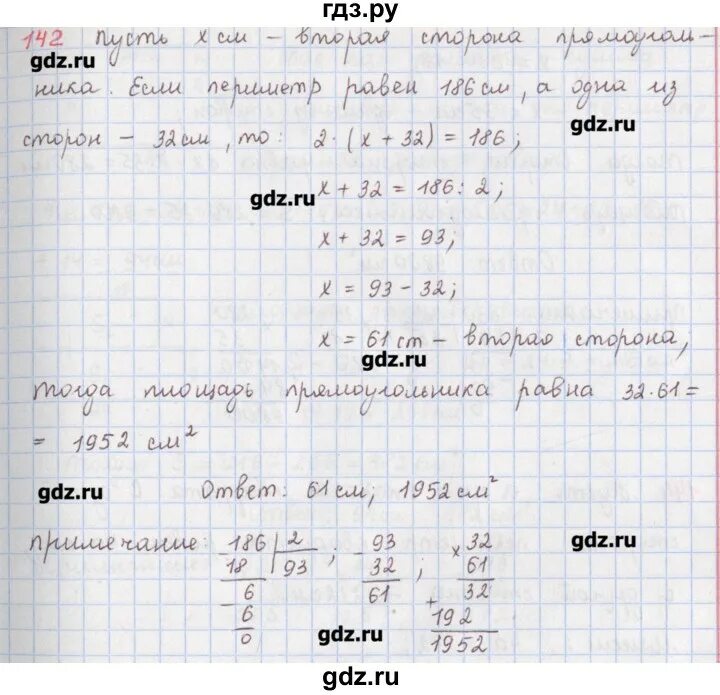 гдз.ру
142 Пусть х см – вторая сторона прямоуголь-
gdz.ru
ника. Если периметр равен 186 см, а одна из
gdz.ru
сторон – 32 см, то: 2·(х + 32) = 186;
х + 32 = 186 : 2;
gdz.ru
х + 32 = 93;
х = 93 – 32;
х = 61 см – вторая сторона;
gdz.ru
тогда площадь прямоугольника равна 32·61 =
= 1952 см²
gdz.ru
Ответ: 61 см; 1952 см²
примечание: - 186 | 2 ; - 93 ; × 32
gdz.ru
18 93 32 61
- 6 61 32
6 + 192
0 1952
gdz.ru
gdz.ru